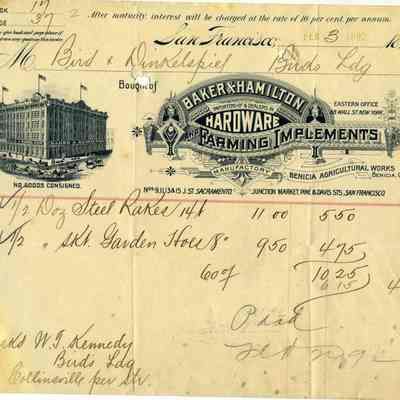 17
37 2 After maturity interest will be charged at the rate of 10 per cent per annum.
San Francisco, FEB 3
M Bird & Dinkelspiel Birds Ldg
Bought of
BAKER & HAMILTON
IMPORTERS OF & DEALERS IN
HARDWARE
AND FARMING IMPLEMENTS
MANUFACTORY
BENICIA AGRICULTURAL WORKS
BENICIA, C
EASTERN OFFICE
88 WALL ST. NEW YORK.
NO GOODS CONSIGNED.
Nos 9, 11, 13 & 15 J. ST. SACRAMENTO
JUNCTION MARKET, PINE & DAVIS STS., SAN FRANCISCO
1/2 Doz Steel Rakes 14t 11 00 5 50
1/2 " Skt Garden Hoes 8" 9 50 4 75
10 25
6 15
W. T. Kennedy
Birds Ldg
Collinsville per Str.